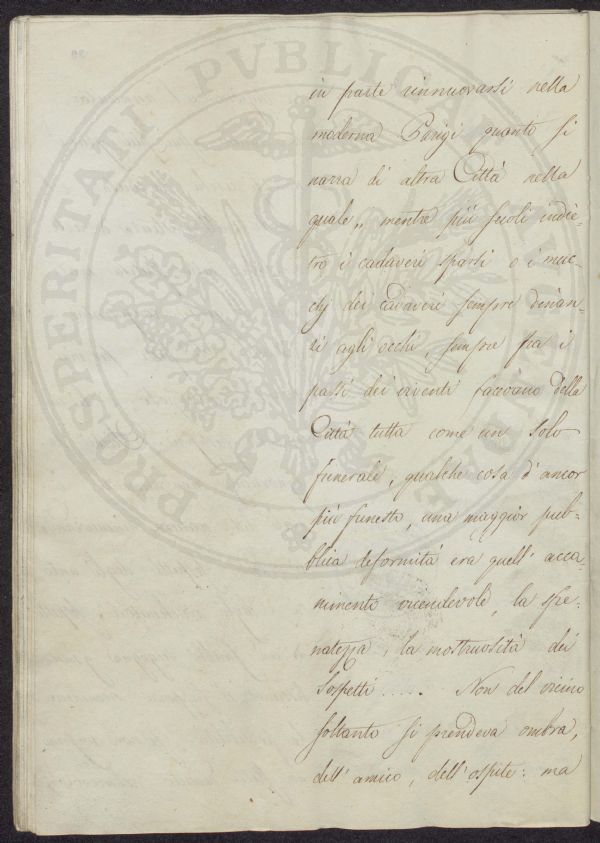 in parte rinnuovarsi nella
moderna Parigi quanto si
narra di altra Città nella
quale „ mentre più suoli indie-
tro i cadaveri sparsi o i muc-
chj dei cadaveri sempre dinan-
zi agli occhi, sempre fra i
passi dei viventi facevano della
Città tutta come un solo
funerale, qualche cosa d'ancor
più funesto, una maggior pub-
blica deformità era quell' acca-
nimento vicendevole, la sfre-
natezza, la mostruosità dei
Sospetti ..... Non del vicino
soltanto si prendeva ombra,
dell' amico, dell' ospite: ma
PROSPERITATI PVBLICAE AVGENDAE